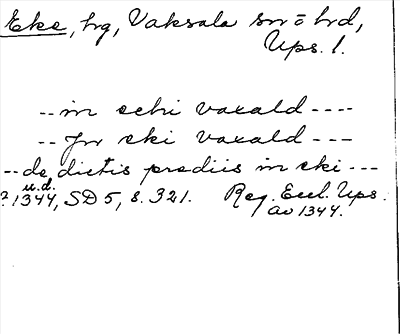 Eke, hg, Vaksala sn o hd,
Ups. l.
-- in eehi vaxald ----
-- Jn eki vaxald ---
-- de dictis prediis in eki ---
u.d.
? 1344, SD 5, s. 321. Reg. Eccl. Ups.
av 1344.